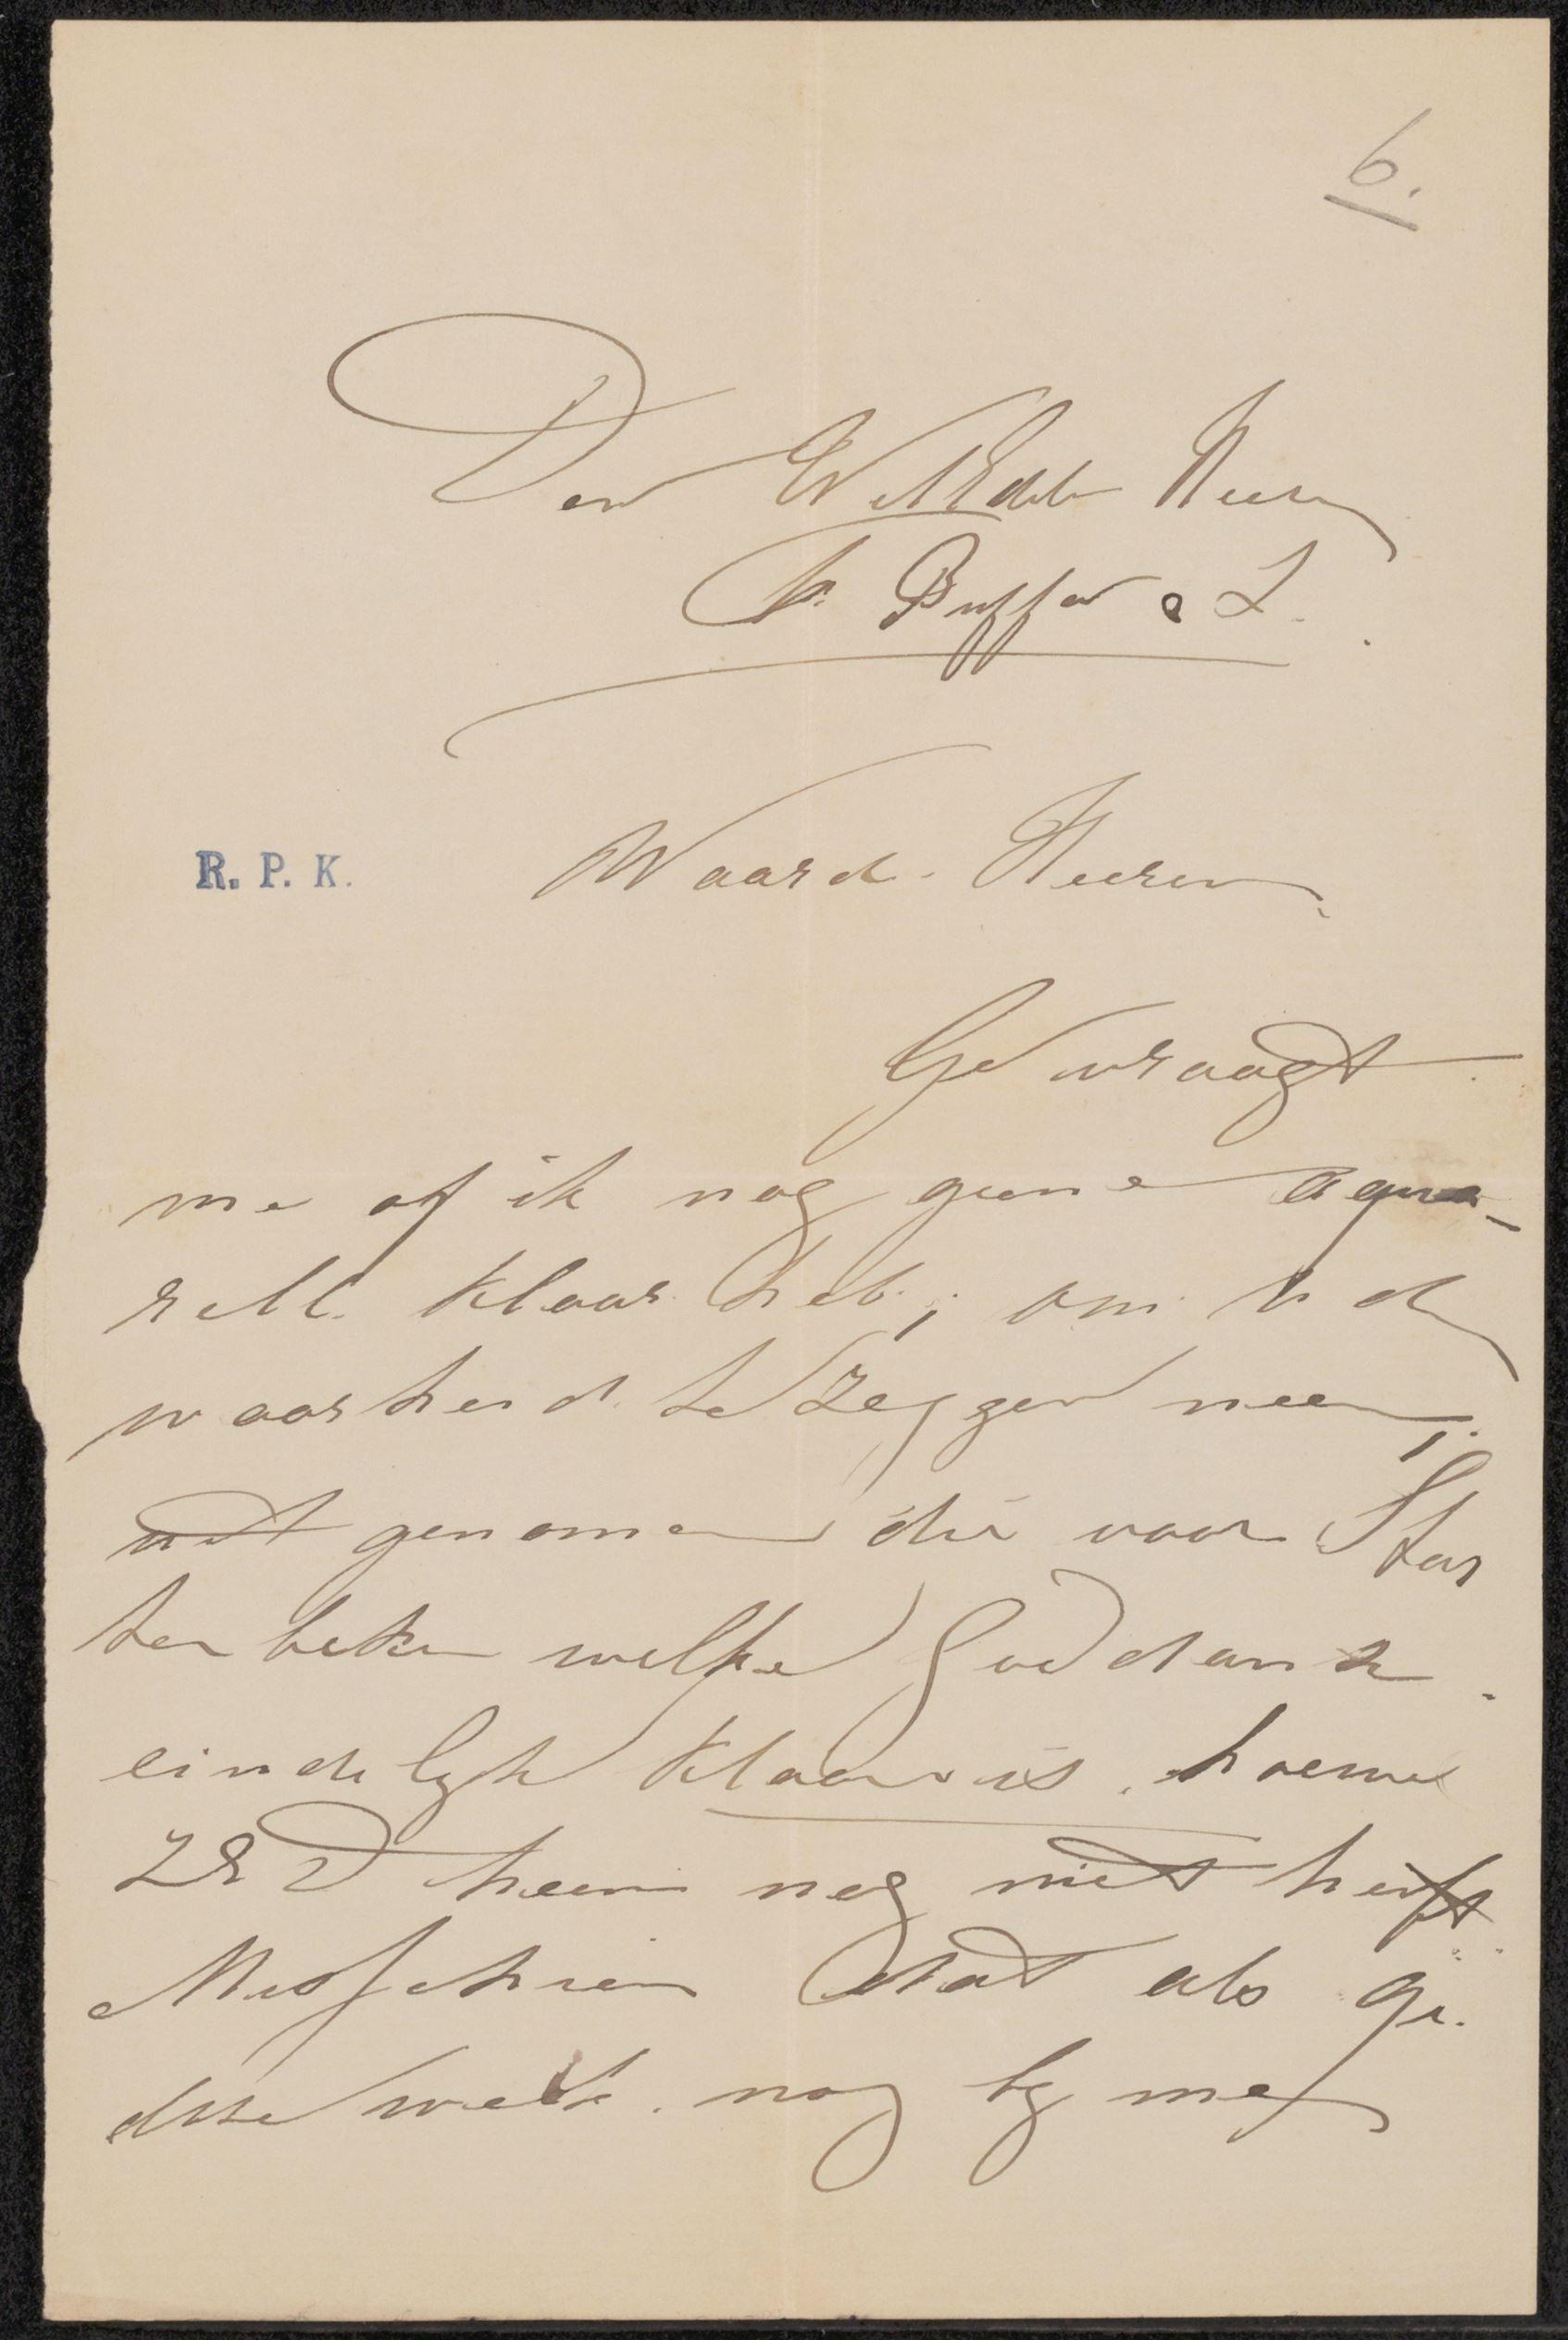 6.
Den WelEdele Heeren
Fr. Buffa & Z.
R. P. K.
Waarde Heeren.
Ge vraagt
me of ik nog geene aqua-
rell. klaar heb; om U de
waarheid te zeggen neen;
uitgenomen die voor Stor
tenbeker welke Goddank
eindelyk klaar is. hoewel
ZEd heem nog niet heeft
Misschien dat als ge
deze week nog by me